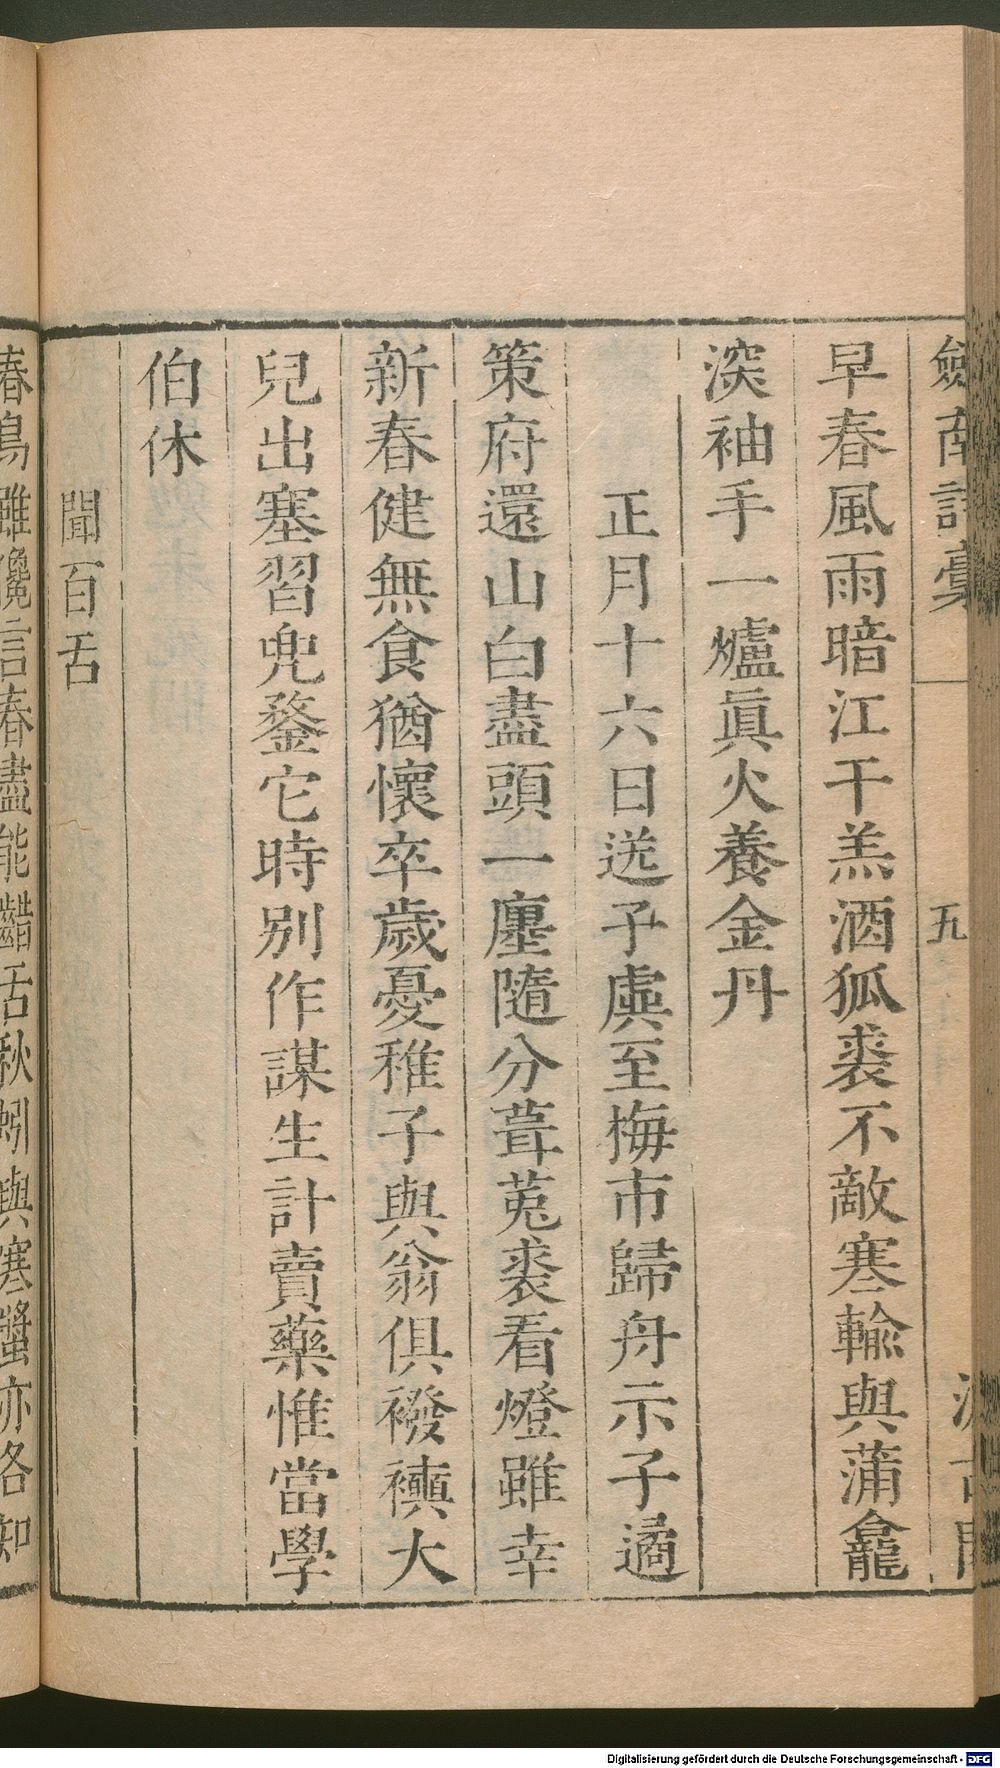 劍南詩稾 五 汲古閣
早春風雨暗江干羔酒狐裘不敵寒輸與蒲龕
深袖手一爐眞火養金丹
正月十六日送子虡至梅市歸舟示子遹
策府還山白盡頭一廛隨分葺菟裘看燈雖幸
新春健無食猶懷卒歲憂稚子與翁俱襏襫大
兒出塞習兜鍪它時別作謀生計賣藥惟當學
伯休
聞百舌
春鳥雖讒言春盡能齰舌秋蚓與寒螿亦各知
Digitalisierung gefördert durch die Deutsche Forschungsgemeinschaft - DFG